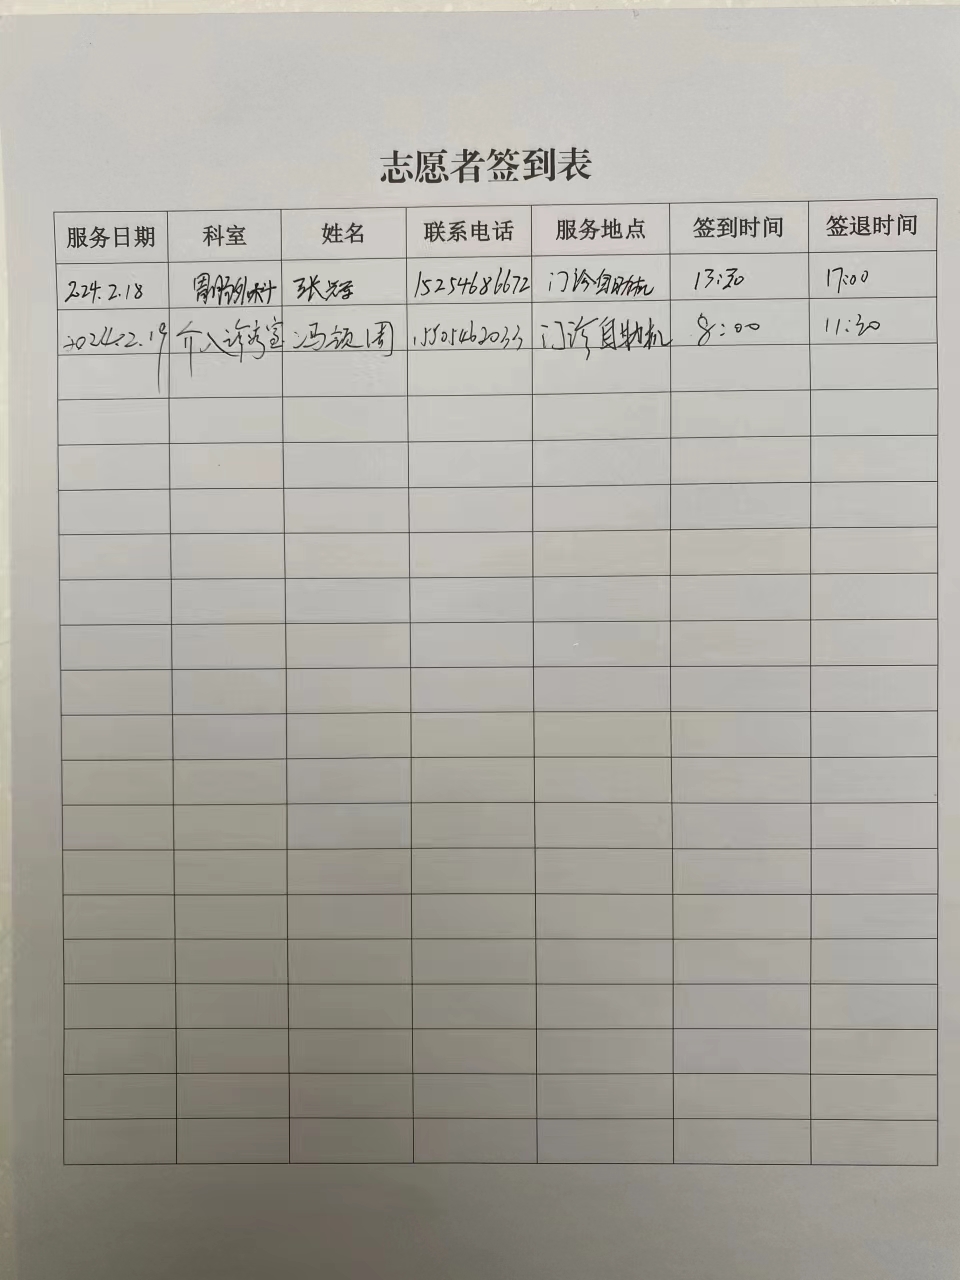 志愿者签到表
服务日期 科室 姓名 联系电话 服务地点 签到时间 签退时间
2024.2.18 胃肠外科 张 15254686672 门诊自助机 13:30 17:00
2024.2.19 介入诊疗室 冯领周 15505462033 门诊自助机 8:00 11:30